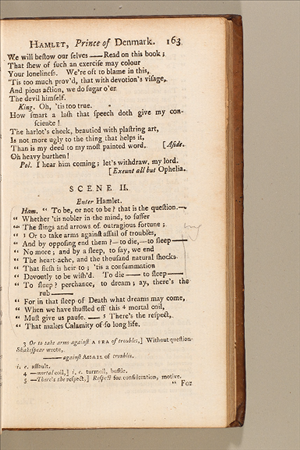 HAMLET, Prince of Denmark. 163
We will bestow our selves —— Read on this book;
That shew of such an exercise may colour
Your loneliness. We're oft to blame in this,
'Tis too much prov'd, that with devotion's visage,
And pious action, we do sugar o'er
The devil himself.
King. Oh, 'tis too true.
How smart a lash that speech doth give my con-
science!
The harlot's cheek, beautied with plastring art,
Is not more ugly to the thing that helps it,
Than is my deed to my most painted word. [Aside.
Oh heavy burthen!
Pol. I hear him coming; let's withdraw, my lord.
[Exeunt all but Ophelia.
SCENE II.
Enter Hamlet.
Ham. " To be, or not to be? that is the question.—
" Whether 'tis nobler in the mind, to suffer
" The slings and arrows of outragious fortune;
" 3 Or to take arms against assail of troubles,
" And by opposing end them?— to die,— to sleep——
" No more; and by a sleep, to say, we end
" The heart-ache, and the thousand natural shocks
" That flesh is heir to; 'tis a consummation
" Devoutly to be wish'd. To die —— to sleep——
" To sleep? perchance, to dream; ay, there's the
rub——
" For in that sleep of Death what dreams may come,
" When we have shuffled off this 4 mortal coil,
" Must give us pause. —— 5 There's the respect,
" That makes Calamity of so long life.
3 Or to take arms against A SEA of troubles,] Without question
Shakespear wrote,
—— against ASSAIL of troubles.
i. e. assault.
4 —mortal coil,] i. e. turmoil, bustle.
5 —There's the respect,] Respect for consideration, motive.
" For